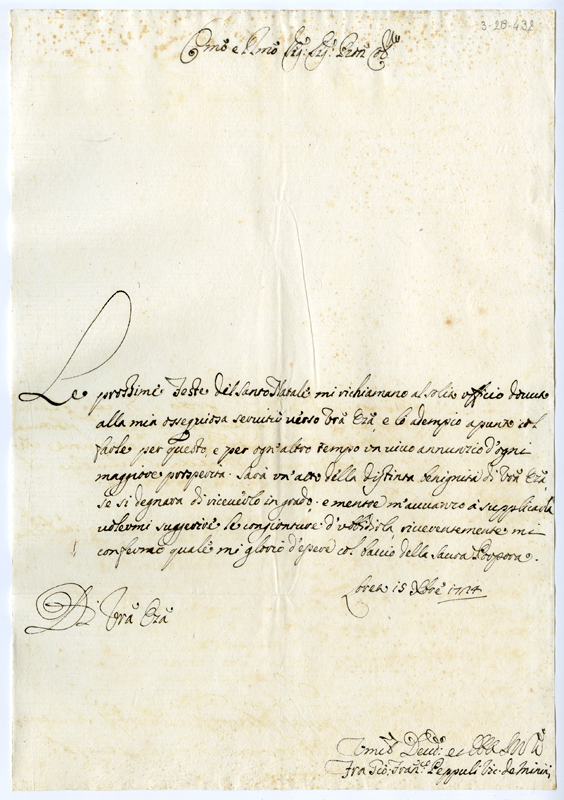 3-20-432
Em̃o e Rm̃o Sig: Sig: Pr̃on Col̃mo
Le prossime Feste del Santo Natale mi richiamano al solito officio douuto
alla mia ossequiosa seruitù uerso Vr̃a Em̃a, e lo adempio apunto col
farle per questo, e per ogn'altro tempo un uiuo annunzio d'ogni
maggiore prosperità. Sarà un'atto della distinta benignità di Vr̃a Em̃a
se si degnarà di riceuerlo in grado, e mentre m'auuanzo à supplicarla
uolermi suggerire le congionture d'vbbidirla, riuerentemente mi
confermo quale mi glorio d'essere col baccio della Sacra Porpora.
Loreto 15 Xbre 1724
Di Vr̃a Em̃a
Deuõ: et
Fra Gio: Franc.o Peppuli de Minin